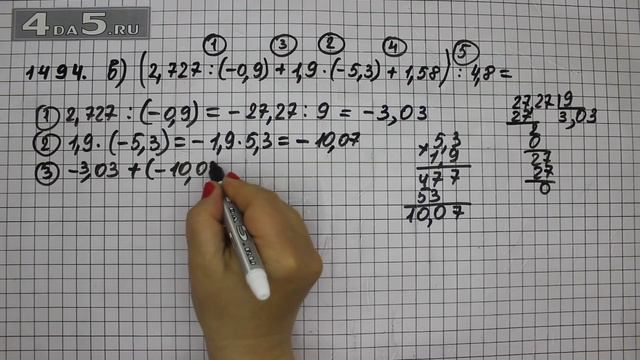 4DA5.RU
① ③ ② ④ ⑤
1494. в) (2,727 : (-0,9) + 1,9 · (-5,3) + 1,58) : 4,8 =
① 2,727 : (-0,9) = - 27,27 : 9 = - 3,03
② 1,9 · (-5,3) = - 1,9 · 5,3 = - 10,07
③ -3,03 + (- 10,0
× 5,3
1,9
477
53
10,07
27,27 | 9
27 3,03
2
0
27
27
0